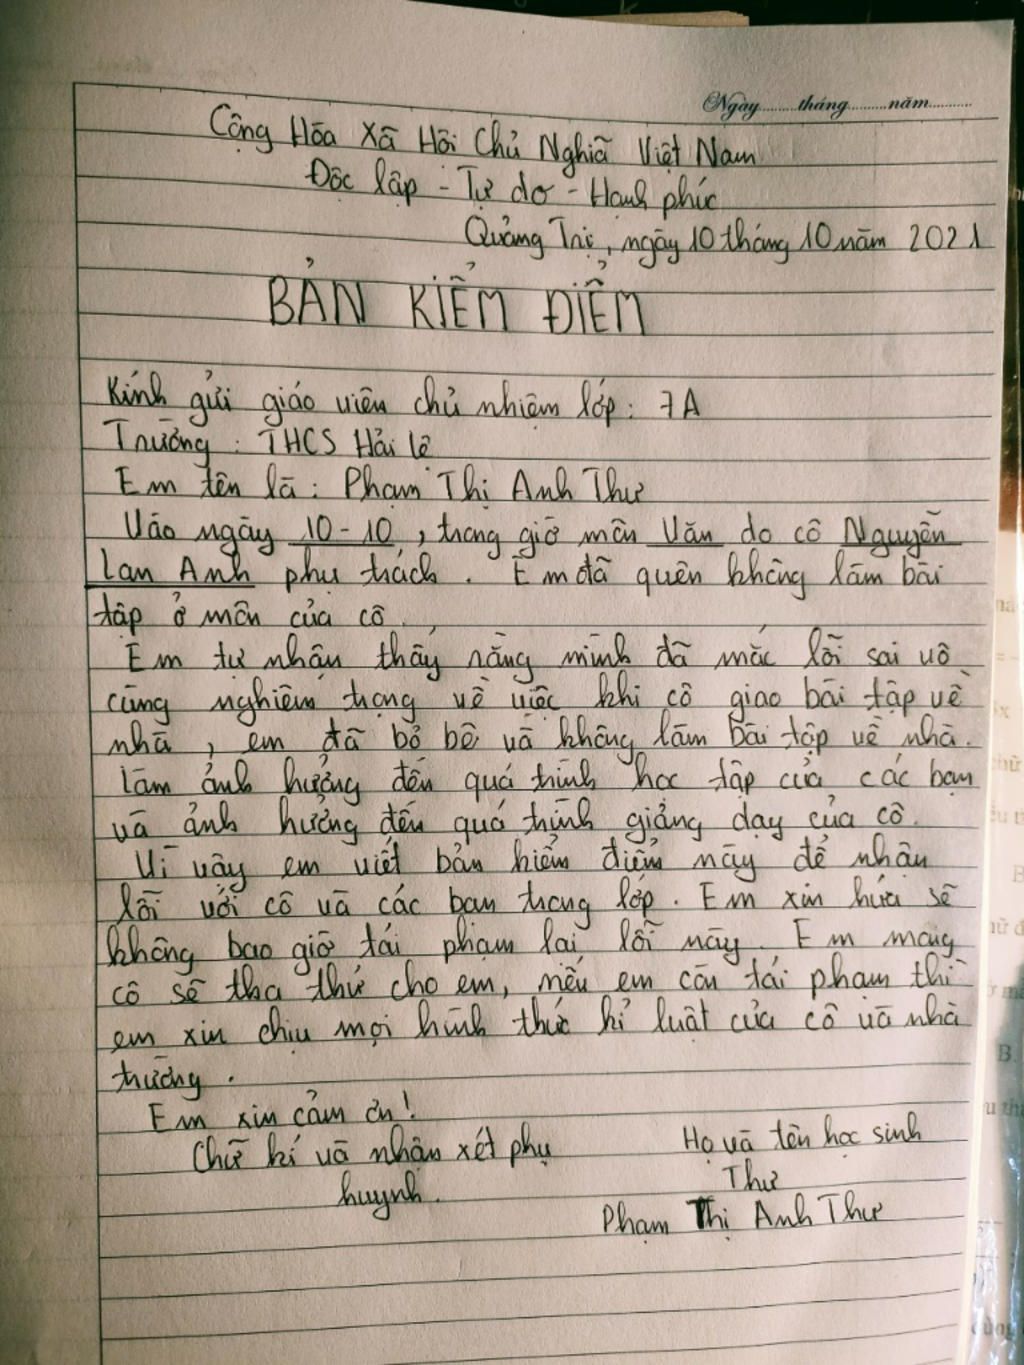 Ngày.........tháng.........năm..........
Cộng Hòa Xã Hội Chủ Nghĩa Việt Nam
Độc lập - Tự do - Hạnh phúc
Quảng Trị, ngày 10 tháng 10 năm 2021
BẢN KIỂM ĐIỂM
Kính gửi giáo viên chủ nhiệm lớp: 7A
Trường: THCS Hải Lệ
Em tên là: Phạm Thị Anh Thư
Vào ngày 10-10, trong giờ môn Văn do cô Nguyễn
Lan Anh phụ trách. Em đã quên không làm bài
tập ở môn của cô.
Em tự nhận thấy rằng mình đã mắc lỗi sai vô
cùng nghiêm trọng về việc khi cô giao bài tập về
nhà, em đã bỏ bê và không làm bài tập về nhà.
Làm ảnh hưởng đến quá trình học tập của các bạn
và ảnh hưởng đến quá trình giảng dạy của cô.
Vì vậy em viết bản kiểm điểm này để nhận
lỗi với cô và các bạn trong lớp. Em xin hứa sẽ
không bao giờ tái phạm lại lỗi này. Em mong
cô sẽ tha thứ cho em, nếu em còn tái phạm thì
em xin chịu mọi hình thức kỉ luật của cô và nhà
trường.
Em xin cảm ơn!
Chữ kí và nhận xét phụ
huynh.
Họ và tên học sinh
Thư
Phạm Thị Anh Thư